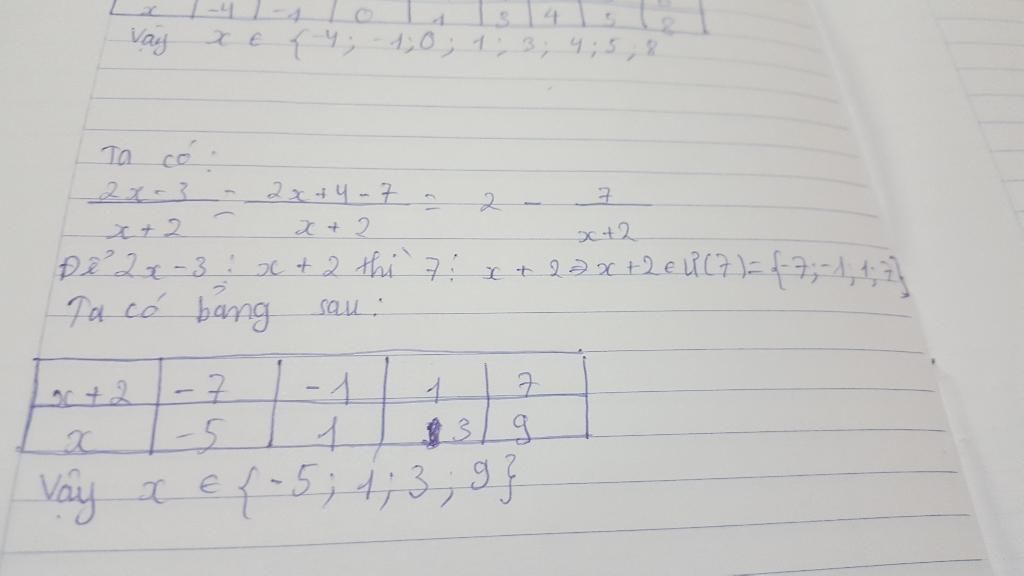 x | -4 | -1 | 0 | 1 | 3 | 4 | 5 | 8
Vậy x ∈ {-4; -1; 0; 1; 3; 4; 5; 8
Ta có:
2x-3 / x+2 = 2x+4-7 / x+2 = 2 - 7 / x+2
Để 2x-3 ⋮ x+2 thì 7 ⋮ x+2 ⇒ x+2 ∈ Ư(7) = {-7; -1; 1; 7}
Ta có bảng sau:
x+2 | -7 | -1 | 1 | 7
x | -5 | 1 | 3 | 9
Vậy x ∈ {-5; 1; 3; 9}